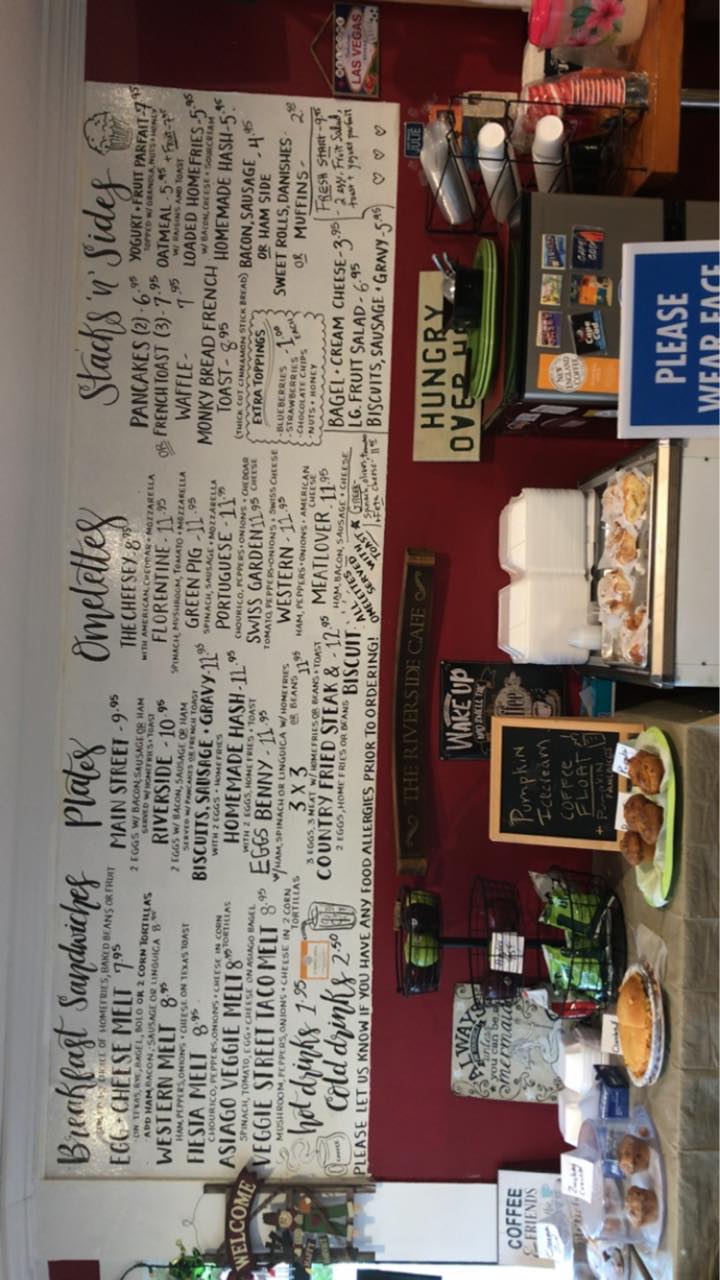 Breakfast Sandwiches
CHOICE OF HOMEFRIES, BAKED BEANS OR FRUIT
EGG + CHEESE MELT 7.95
ON TEXAS, RYE, BAGEL, BOLO OR 2 CORN TORTILLAS
ADD HAM, BACON, SAUSAGE OR LINGUICA 8.95
WESTERN MELT 8.95
HAM, PEPPERS, ONIONS + CHEESE ON TEXAS TOAST
FIESTA MELT 8.95
CHOURICO, PEPPERS, ONIONS + CHEESE IN CORN TORTILLAS
ASIAGO VEGGIE MELT 8.95
SPINACH, TOMATO, EGG + CHEESE ON ASIAGO BAGEL
VEGGIE STREET TACO MELT 8.95
MUSHROOM, PEPPERS, ONIONS + CHEESE IN 2 CORN TORTILLAS
hot drinks 1.95
cold drinks 2.50
Plates
MAIN STREET - 9.95
2 EGGS W/ BACON, SAUSAGE OR HAM
SERVED W/ HOMEFRIES + TOAST
RIVERSIDE - 10.95
2 EGGS W/ BACON, SAUSAGE OR HAM
SERVED W/ PANCAKES OR FRENCH TOAST
BISCUITS, SAUSAGE + GRAVY - 11.95
WITH 2 EGGS + HOMEFRIES
HOMEMADE HASH - 11.95
WITH 2 EGGS, HOMEFRIES + TOAST
EGGS BENNY - 11.95
W/ HAM, SPINACH OR LINGUICA W/ HOMEFRIES OR BEANS
3 X 3 11.95
3 EGGS, 3 MEAT W/ HOMEFRIES OR BEANS + TOAST
COUNTRY FRIED STEAK & BISCUIT - 12.95
2 EGGS, HOME FRIES OR BEANS
Omelettes
THE CHEESEY - 8.95
WITH AMERICAN, CHEDDAR + MOZZARELLA
FLORENTINE - 11.95
SPINACH, MUSHROOM, TOMATO + MOZZARELLA
GREEN PIG - 11.95
SPINACH, SAUSAGE + MOZZARELLA
PORTUGUESE - 11.95
CHOURICO, PEPPERS + ONIONS + CHEDDAR CHEESE
SWISS GARDEN 11.95
TOMATO, PEPPERS + ONIONS + SWISS CHEESE
WESTERN - 11.95
HAM, PEPPERS + ONIONS + AMERICAN CHEESE
MEATLOVER - 11.95
HAM, BACON, SAUSAGE + CHEESE
ALL OMELETTES SERVED WITH TOAST
* GREEK
Spinach, olives, tomato
+ Feta cheese - 11.95
Stacks 'n' Sides
PANCAKES (2) - 6.95
OR FRENCH TOAST (3) - 7.95
WAFFLE - 7.95
MONKY BREAD FRENCH
TOAST - 8.95
(THICK CUT CINNAMON STICK BREAD)
EXTRA TOPPINGS
- BLUEBERRIES
- STRAWBERRIES
- CHOCOLATE CHIPS
- NUTS + HONEY
1.00 EACH
BAGEL + CREAM CHEESE - 3.95
LG. FRUIT SALAD - 6.95
BISCUITS, SAUSAGE + GRAVY - 5.95
YOGURT + FRUIT PARFAIT - 7.95
TOPPED W/ GRANOLA, NUTS + HONEY
OATMEAL - 5.95 + Fruit - 7
W/ RAISINS AND TOAST
LOADED HOMEFRIES - 5.95
W/ BACON, CHEESE + SOUR CREAM
HOMEMADE HASH - 5.95
BACON, SAUSAGE
OR HAM SIDE - 4.95
SWEET ROLLS, DANISHES
OR MUFFINS - 2.95
FRESH START - 9.95
- 2 egg, Fruit Salad,
toast + yogurt parfait
PLEASE LET US KNOW IF YOU HAVE ANY FOOD ALLERGIES PRIOR TO ORDERING!
WELCOME
LAS VEGAS
JULIE
THE RIVERSIDE CAFE
HUNGRY
OVER H
WAKE UP
AND SMELL THE
Coffee
Pumpkin
Icecream
COFFEE
FLOAT
+ Pumpkin
PANCAKES
ALWAYS
unless
you can be a
mermaid
COFFEE
& FRIENDS
NEW ENGLAND COFFEE
CAPE COD
PLEASE
WEAR FACE